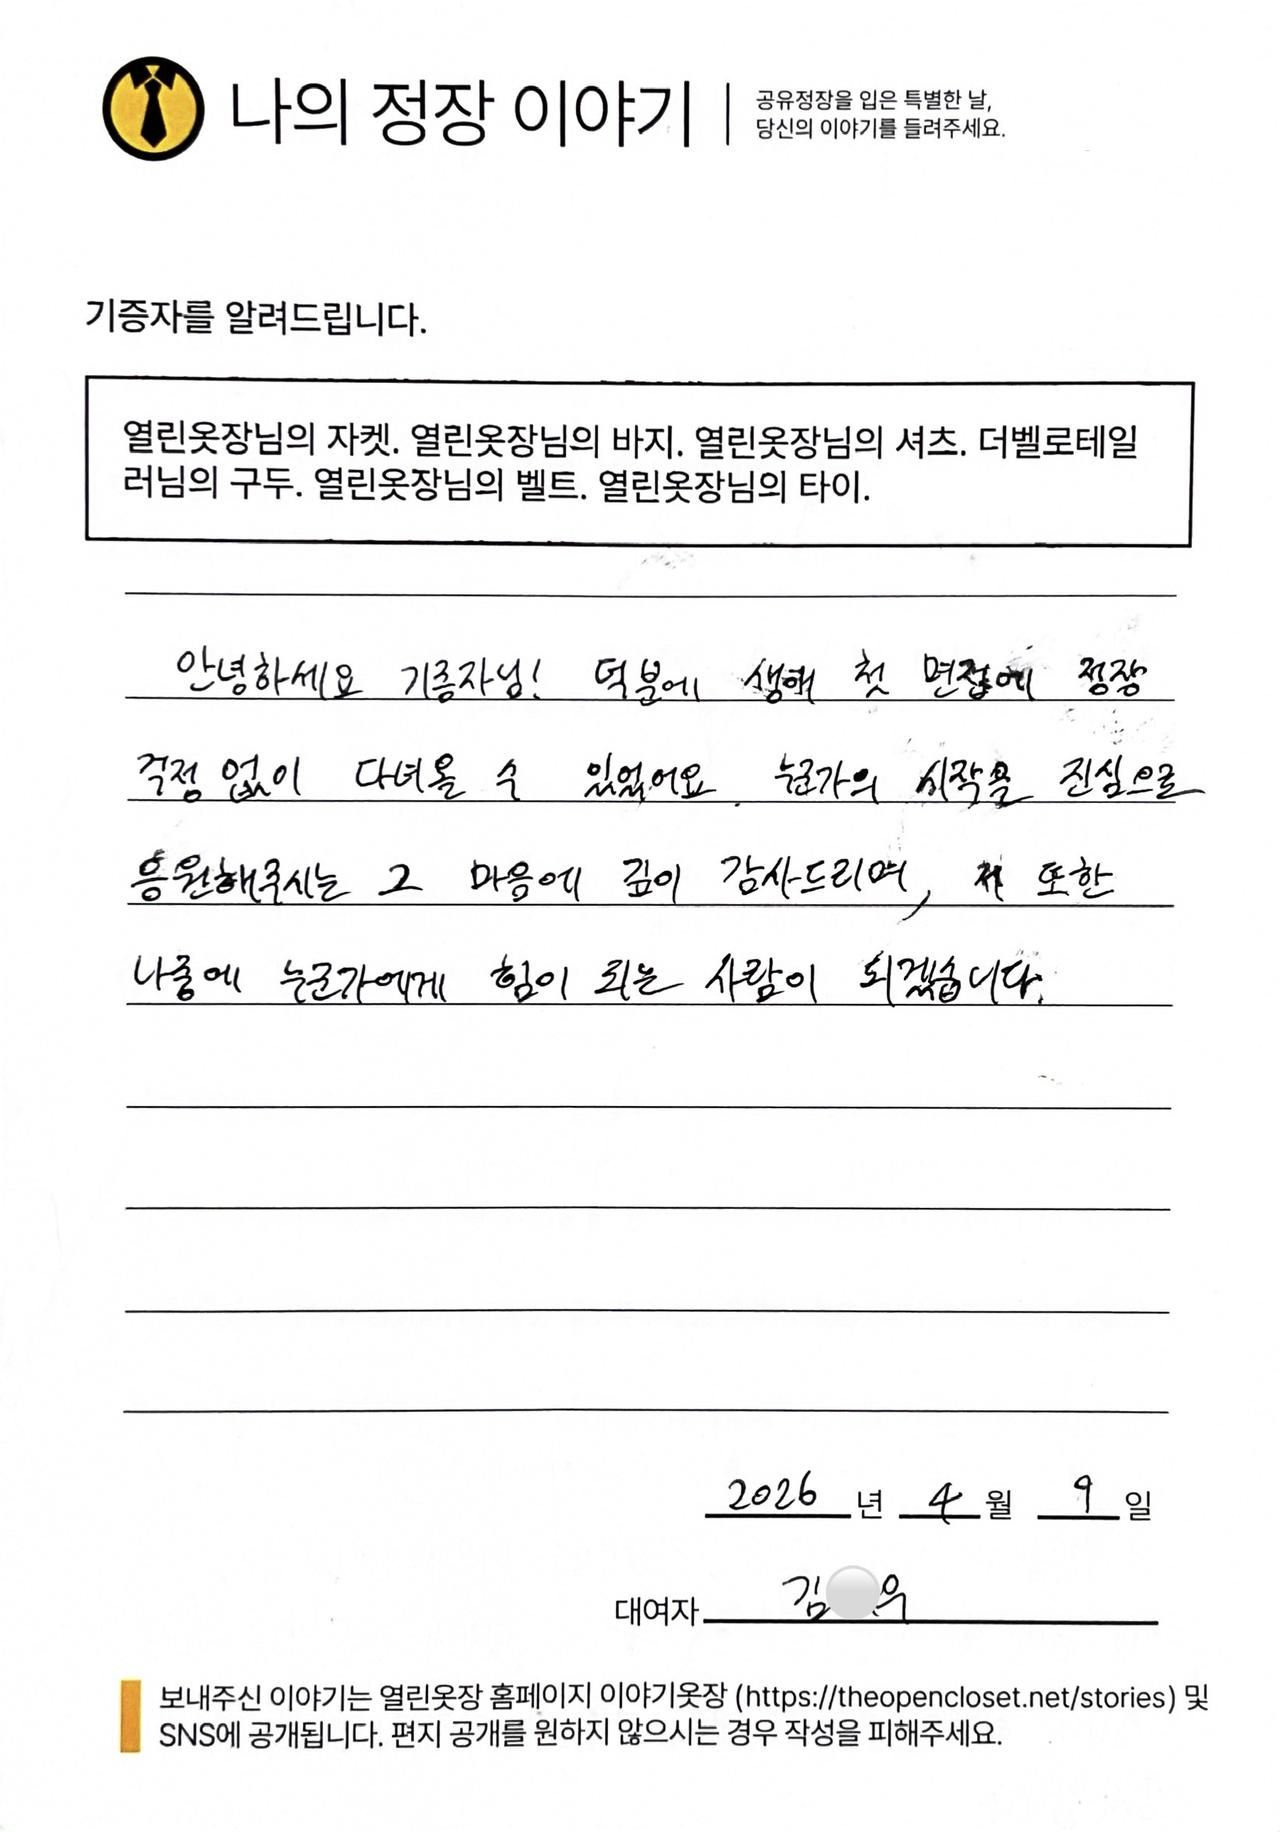 나의 정장 이야기
공유정장을 입은 특별한 날,
당신의 이야기를 들려주세요.
기증자를 알려드립니다.
열린옷장님의 자켓. 열린옷장님의 바지. 열린옷장님의 셔츠. 더벨로테일
러님의 구두. 열린옷장님의 벨트. 열린옷장님의 타이.
안녕하세요 기증자님! 덕분에 생애 첫 면접에 정장
걱정 없이 다녀올 수 있었어요. 누군가의 시작을 진심으로
응원해주시는 그 마음에 깊이 감사드리며, 저 또한
나중에 누군가에게 힘이 되는 사람이 되겠습니다.
2026 년 4 월 9 일
대여자 김 우
보내주신 이야기는 열린옷장 홈페이지 이야기옷장 (https://theopencloset.net/stories) 및
SNS에 공개됩니다. 편지 공개를 원하지 않으시는 경우 작성을 피해주세요.